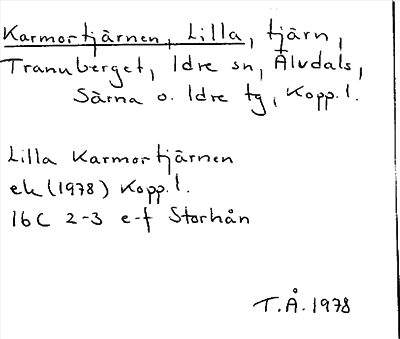 Karmortjärnen, Lilla, tjärn,
Tranuberget, Idre sn, Älvdals,
Särna o. Idre tg, Kopp.l.
Lilla Karmortjärnen
ek (1978) Kopp.l.
16C 2-3 e-f Storhån
T.Å. 1978